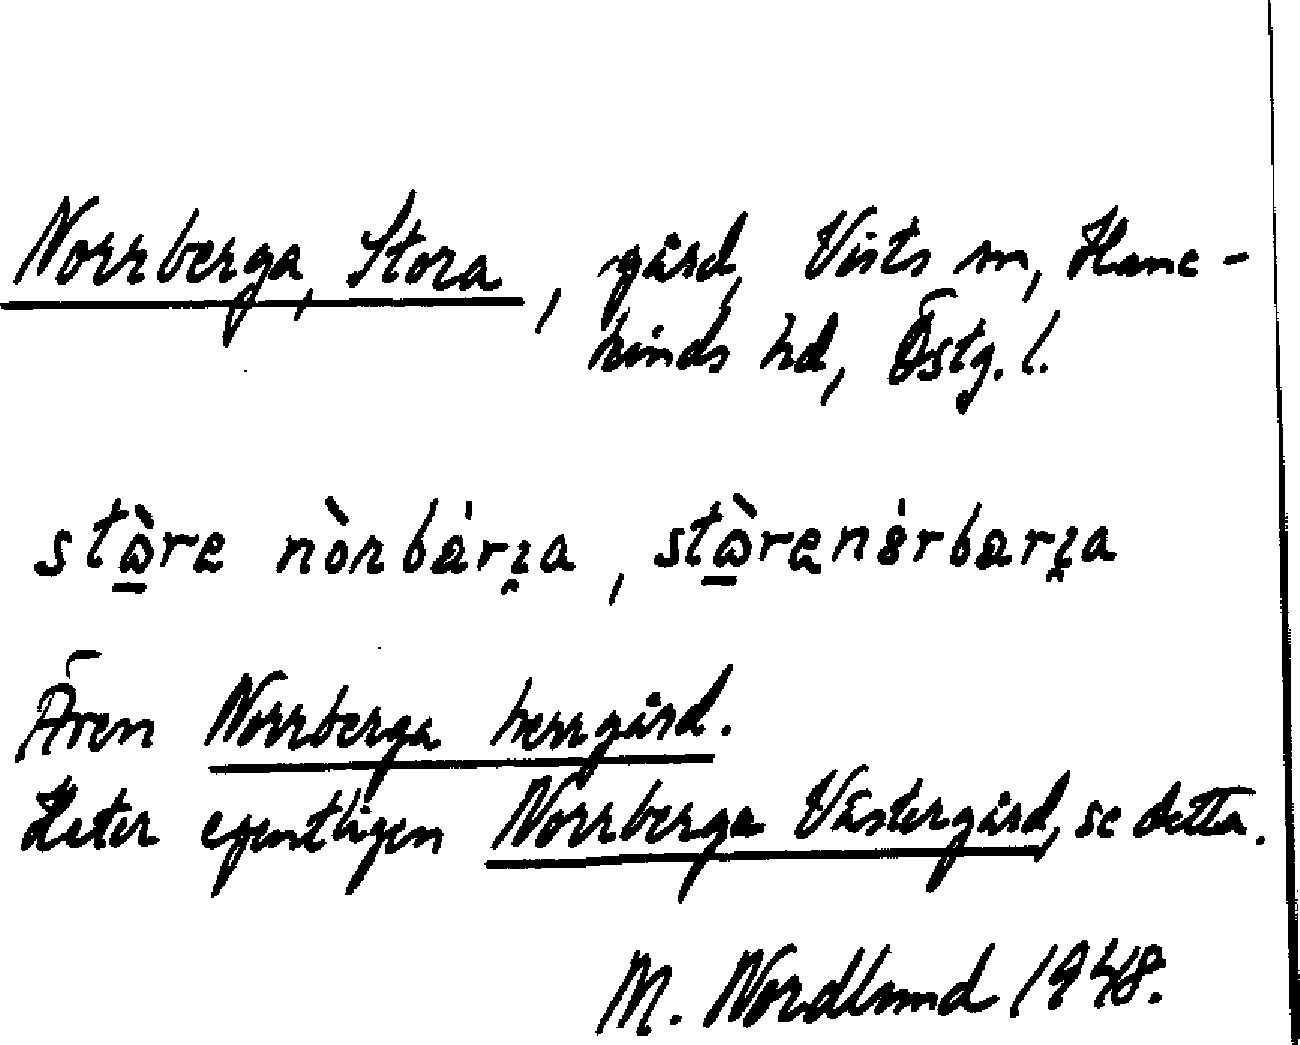 Norrberga, Stora, gård, Vists sn, Hane-
kinds hd, Östg. l.
Även Norrberga herrgård.
Heter egentligen Norrberga Västergård, se detta.
M. Nordlund 1948.